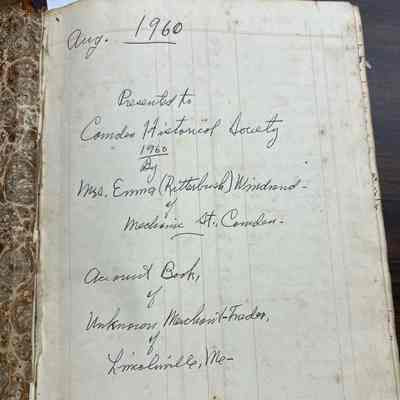 Aug. 1960
Presented to
Camden Historical Society
1960
By
Mrs. Emma (Ritterbush)
of
Mechanic St., Camden-
Account Book,
of
Unknown Merchant-Trader,
of
Lincolnville, Me-